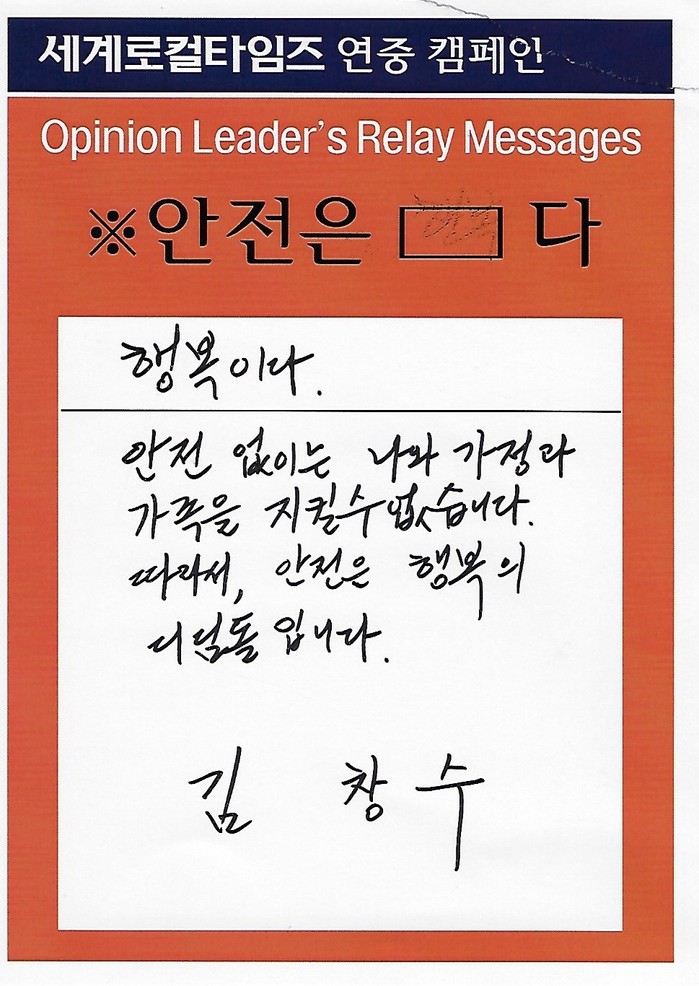 세계로컬타임즈 연중 캠페인
Opinion Leader's Relay Messages
※안전은 다
행복이다.
안전 없이는 나와 가정과
가족을 지킬수 없습니다.
따라서, 안전은 행복의
디딤돌 입니다.
김 창 수